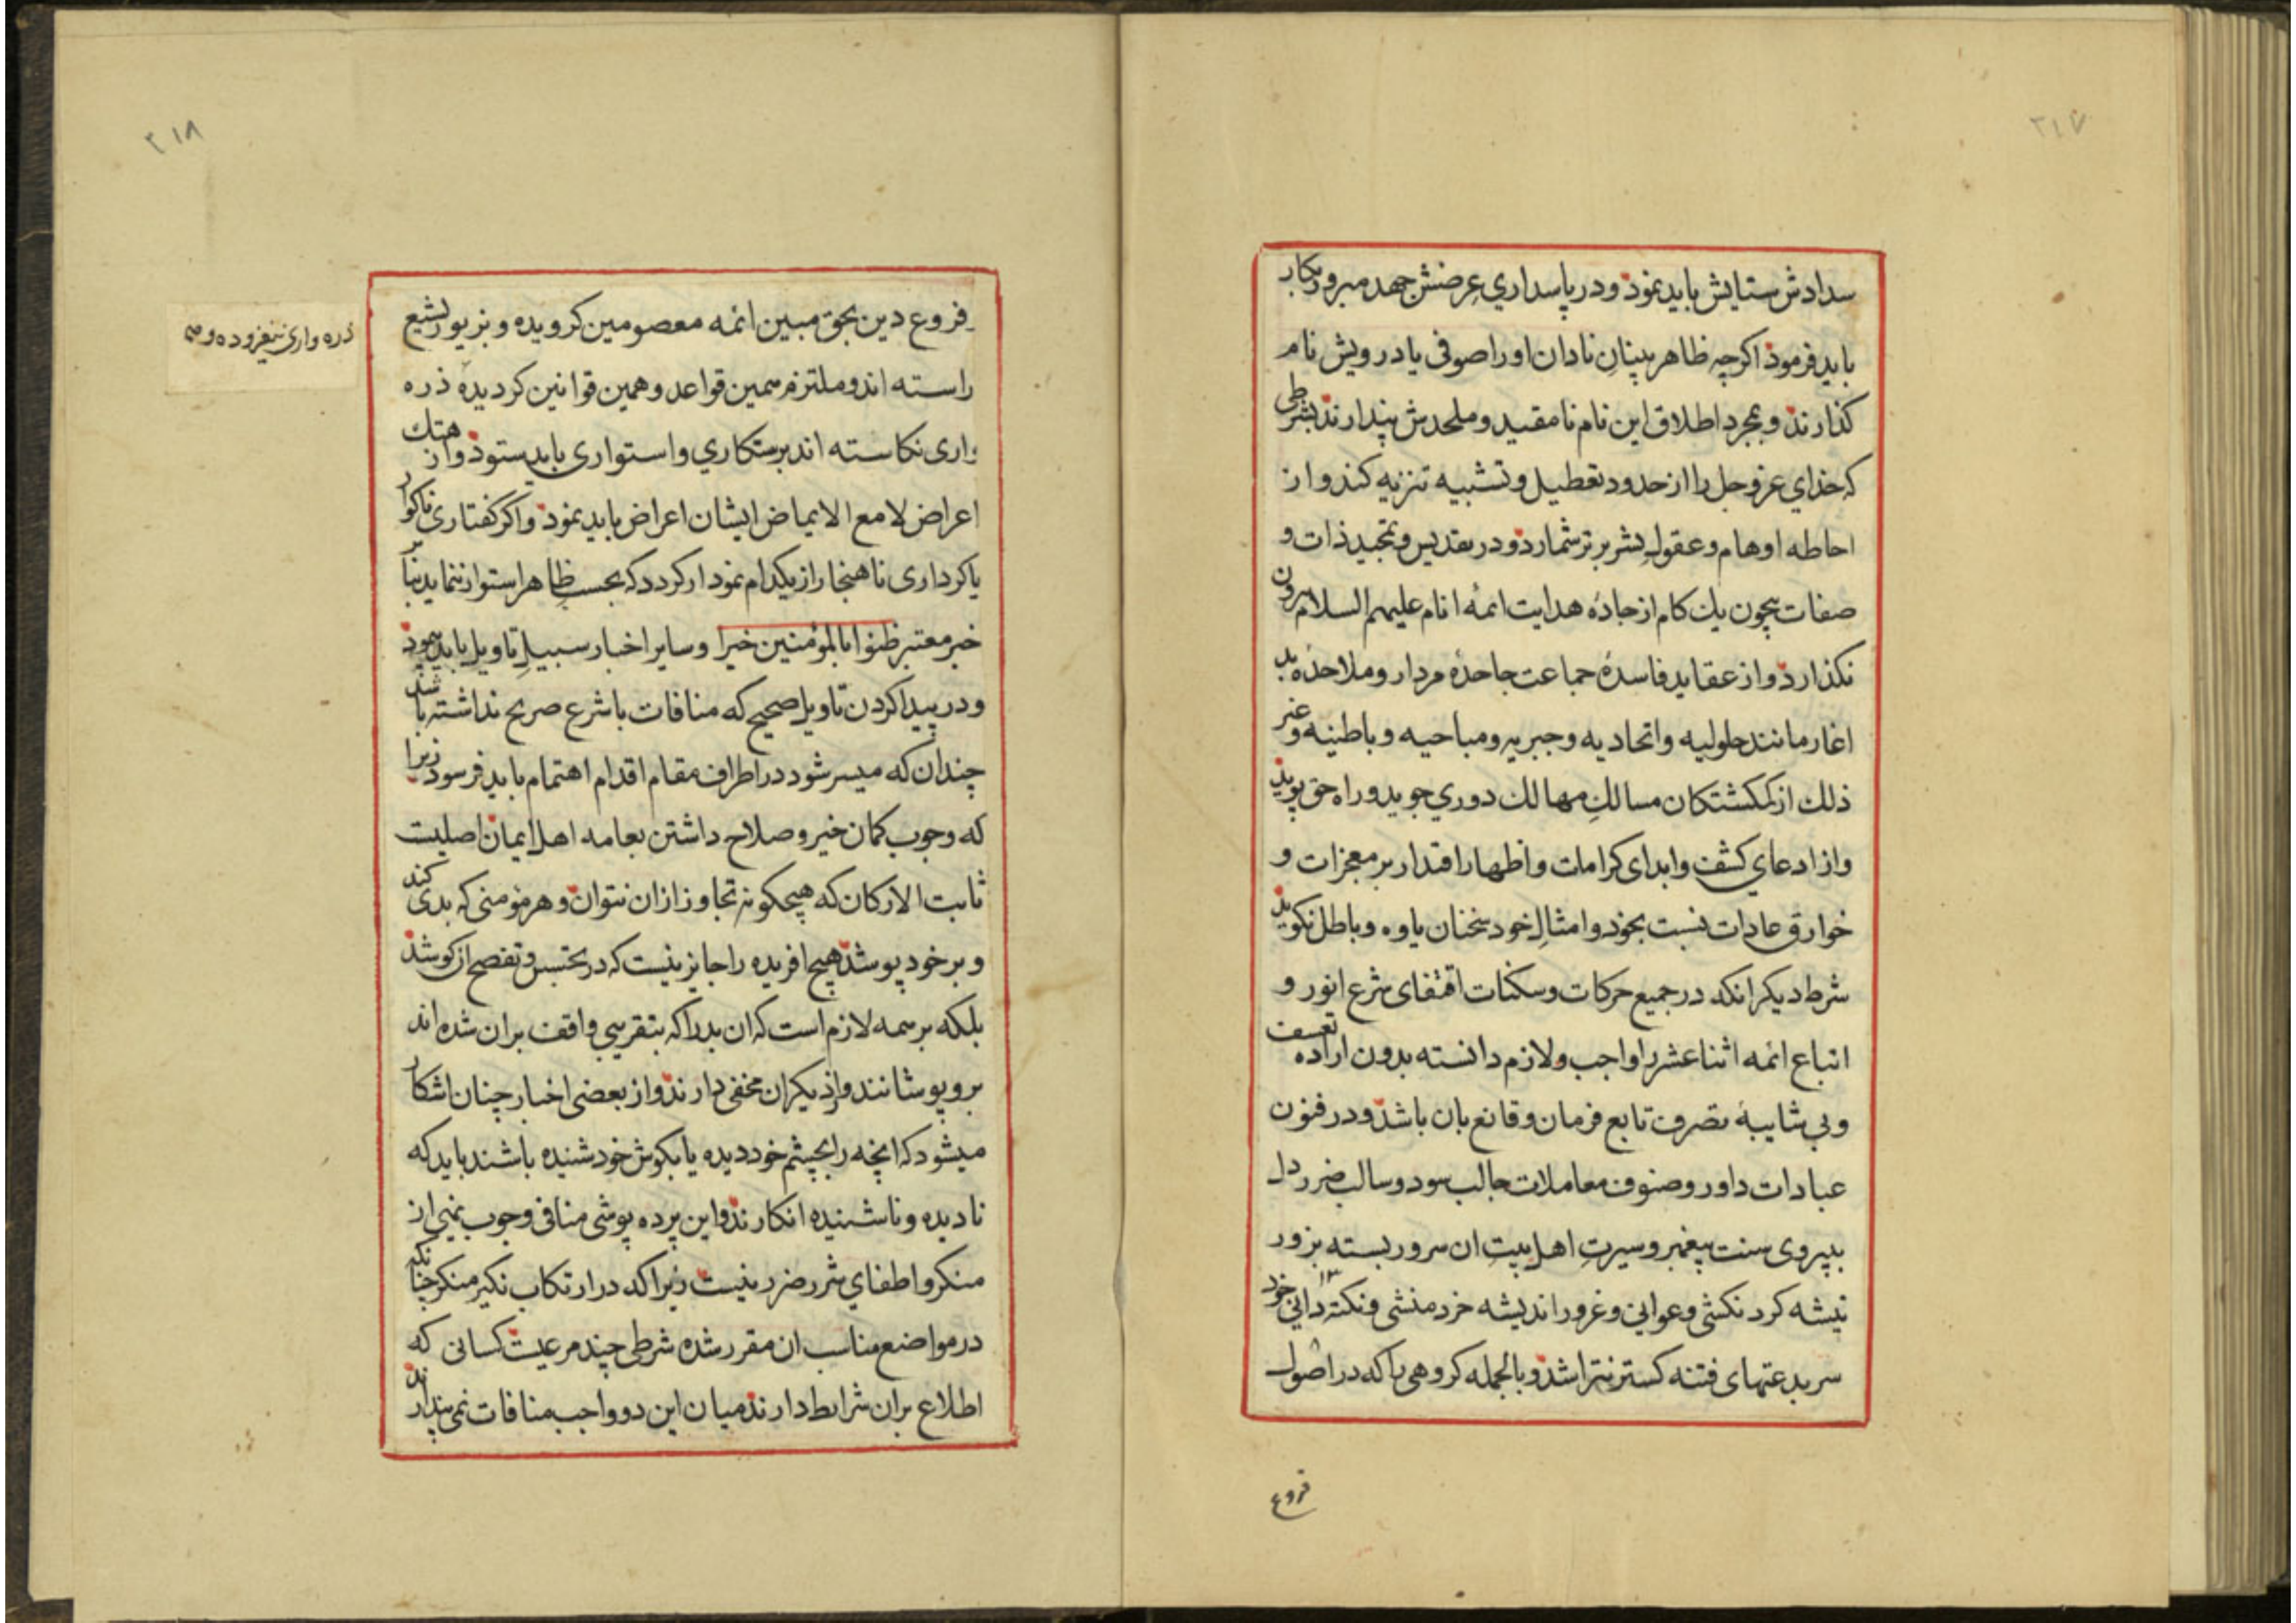 ۲۱۷
سدادش ستایش باید نمود و در پاسداری عرضش جهد مبرور بکار
باید فرمود اکرچه ظاهر بینان نادان اورا صوفی یا درویش نام
کذارند و بمجرد اطلاق این نام نامقید و ملحدش پندارند بشرطی
که خدای عزوجل را از حدود تعطیل و تشبیه تنزیه کند و از
احاطه اوهام و عقول بشر برتر شمارد و در تقدیس و تمجید ذات و
صفات بیچون یك کام از جادهٔ هدایت ائمهٔ انام علیهم السلام برون
نکذارد و از عقاید فاسدهٔ جماعت جاحدهٔ مردار و ملاحدهٔ بد
اغار مانند حلولیه و اتحادیه و جبریه و مباحیه و باطنیه و غیر
ذلك از کمکشتکان مسالكِ مهالك دوري جوید و راه حق پوید
و از ادعای کشف و ابدای کرامات و اظهار اقتدار بر معجزات و
خوارق عادات نسبت بخود و امثالِ خود سخنان یاوه و باطل نکوید
شرط دیکر انکه در جمیع حرکات و سکنات اقتفای شرع انور و
اتباع ائمه اثنا عشر را واجب و لازم دانسته بدون اراده تعسف
و بی شایبهٔ تصرف تابع فرمان و قانع بان باشد و در فنون
عبادات داور و صنوف معاملات جالب سود و سالب ضرر دل
بپیروی سنت پیغمبر و سیرتِ اهل بیتِ ان سرور بسته بزور
تیشه کردنکشی و عوانی و غرور اندیشه خردمنشی و نکته دانی خود
سر بدعتهای فتنه کستر نتراشد و بالجمله کروهی را که در اصول
فروع
۲۱۸
فروع دین بحق مبین ائمه معصومین کرویده و بزیور تشیع
راسته اند و ملتزم همین قواعد و همین قوانین کردیده ذره
واری نکاسته اند برستکاري و استواری باید ستود و از هتك
اعراض لامع الایماض ایشان اعراض باید نمود و اکر کفتاری ناکوار
یا کرداری ناهنجار از یکدام نمودار کردد که بحسب ظاهر استوار ننماید بنا بر
خبر معتبر ظنوا بالمؤمنین خیرا و سایر اخبار سبیلِ تاویل باید پیمود
و در پیدا کردن تاویل صحیح که منافات با شرع صریح نداشته باشد
چندان که میسر شود در اطراف مقام اقدام اهتمام باید فرسود زیرا
که وجوب کمان خیر و صلاح داشتن بعامه اهل ایمان اصلیت
ثابت الارکان که هیچکونه تجاوز ازان نتوان و هر مؤمنی که بدی کند
و بر خود پوشد هیچ افریده را جایز نیست که در تجسس و تفصح ان کوشد
بلکه بر همه لازم است که ان بد را که بتقریبي واقف بران شده اند
برو پوشانند و از دیکران مخفی دارند و از بعضی اخبار چنان اشکار
میشود که انچه را بچشم خود دیده یا بکوش خود شنیده باشند باید که
نادیده و ناشنیده انکارند و این پرده پوشی منافی وجوب نهی از
منکر و اطفای شرر ضرر نیست زیرا که در ارتکاب نکیر منکر چنانکه
در مواضع مناسب ان مقرر شده شرطی چند مرعیست کسانی که
اطلاع بران شرایط دارند میان این دو واجب منافات نمی پندارند
ذره واری نیفزوده و